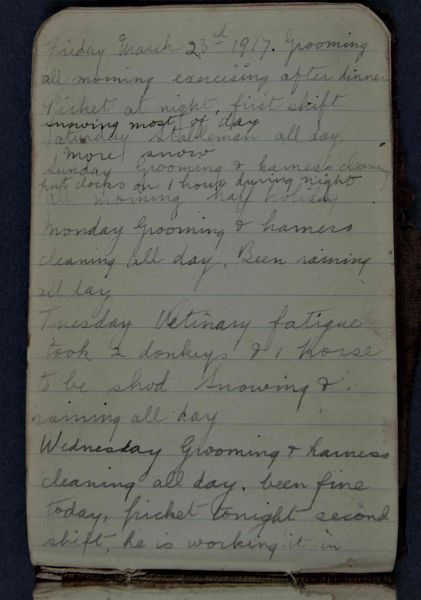 Friday March 23rd 1917. Grooming
all morning exercising after dinner
Picket at night, first shift
snowing most of day
Saturday Stableman all day
more snow
Sunday Grooming & harness cleaning
put clocks on 1 hour during night
all morning half holiday
Monday Grooming & harness
cleaning all day. Been raining
all day
Tuesday Vetinary fatigue
took 2 donkeys & 1 horse
to be shod Snowing &
raining all day
Wednesday Grooming & harness
cleaning all day. been fine
today, picket tonight second
shift, he is working it in